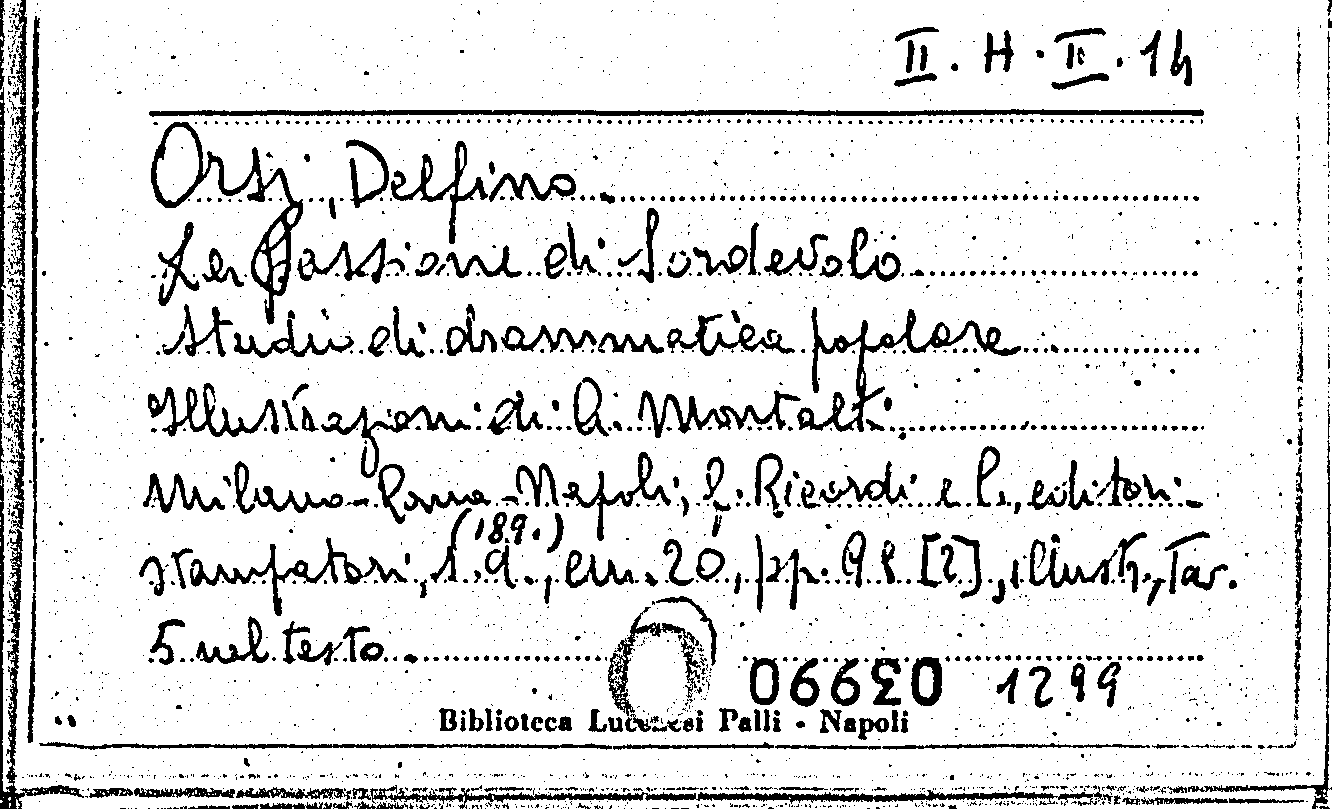 II. H. II. 14
Orsi, Delfino.
La Passione di Sordevolo.
Studio di drammatica popolare
Illustrazioni di A. Montalti.
Milano-Roma-Napoli, G. Ricordi e C., editori-
(189.)
stampatori, s.d., cm. 20, pp. 98 [2], illustr., Tav.
5 nel testo.
1299
Biblioteca Lucchesi Palli - Napoli